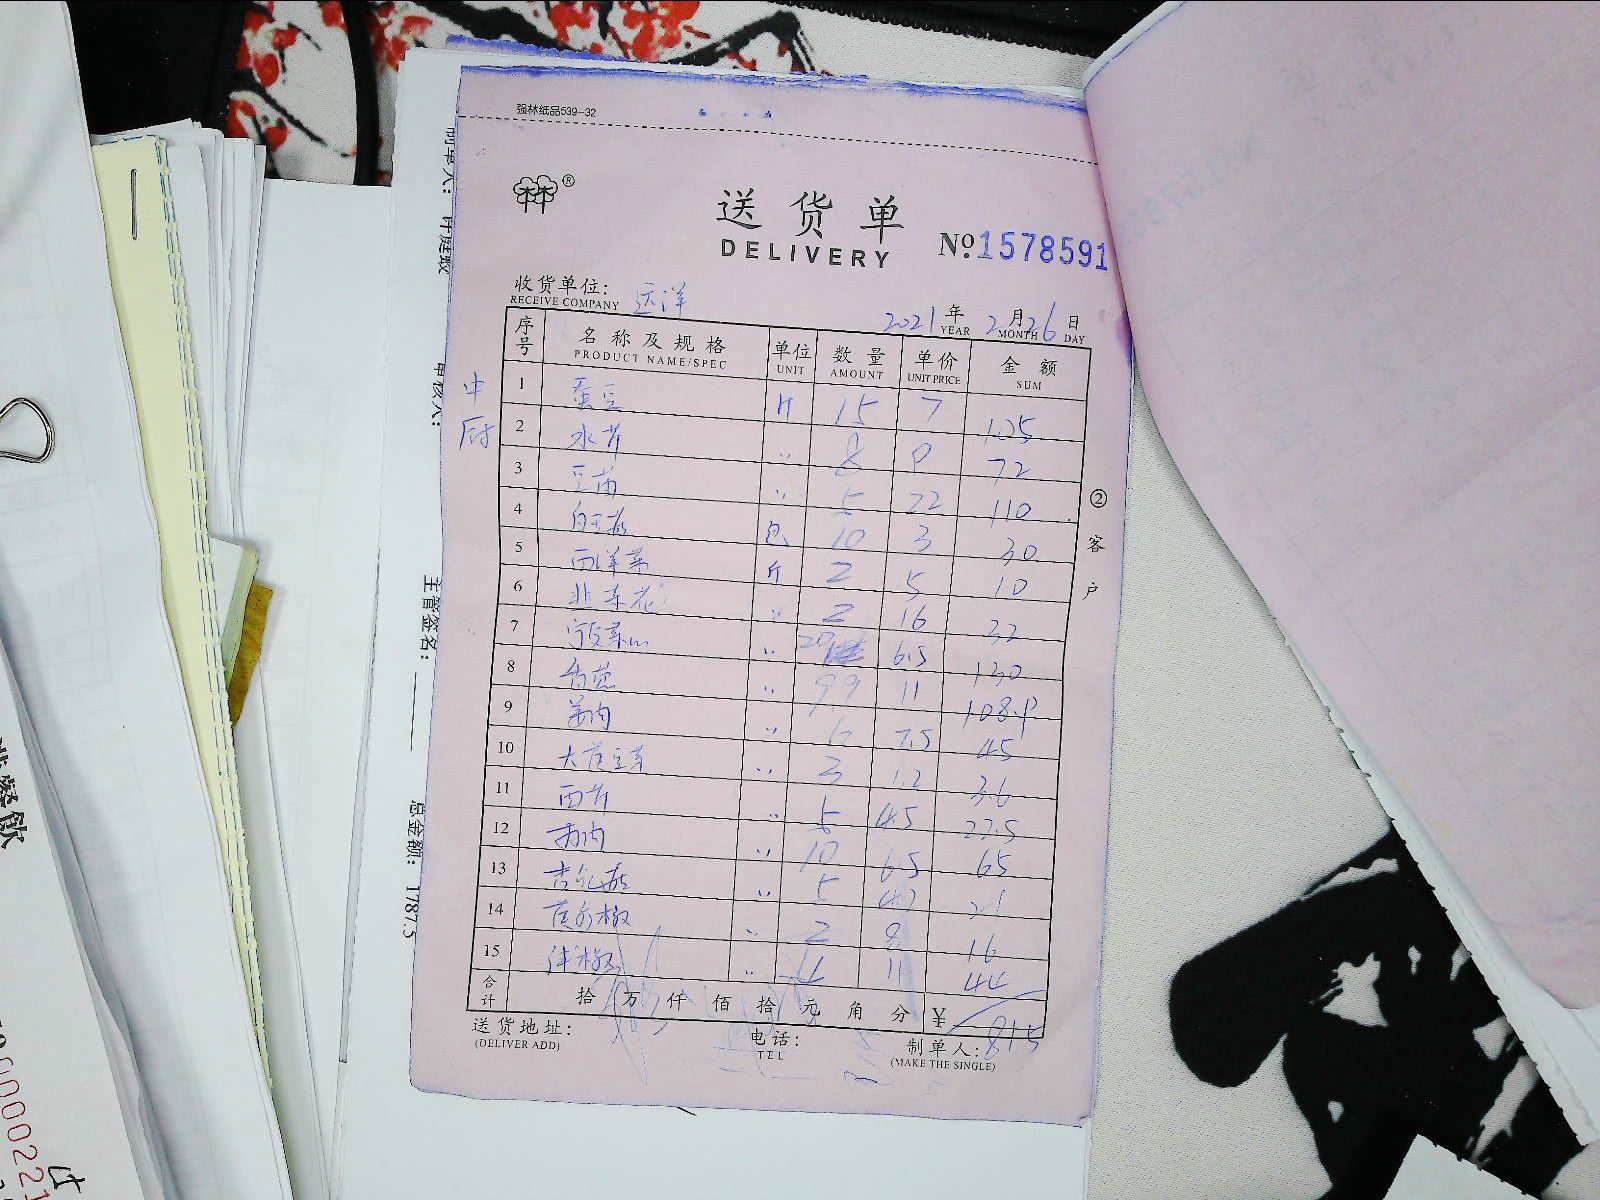 强林纸品539-32
®
送货单
DELIVERY
№:1578591
收货单位: 远洋
RECEIVE COMPANY
2021 年 2 月 26 日
YEAR MONTH DAY
序号 名称及规格 单位 数量 单价 金额
PRODUCT NAME/SPEC UNIT AMOUNT UNIT PRICE SUM
中厨
1 蚕豆 斤 15 7 105
2 水芹 〃 8 9 72
3 豆苗 〃 5 22 110
4 白玉菇 包 10 3 30
5 西洋菜 斤 2 5 10
6 韭菜花 〃 2 16 32
7 菜心 〃 20 6.5 130
8 香葱 〃 9.9 11 108.9
9 姜肉 〃 6 7.5 45
10 大黄豆芽 〃 3 1.2 3.6
11 西芹 〃 5 4.5 22.5
12 〃 10 6.5 65
13 〃 5 4.2 21
14 〃 2 8 16
15 〃 4 11 44
合计 拾 万 仟 佰 拾 元 角 分 ¥ 815
送货地址:
(DELIVER ADD)
电话:
TEL
制单人:
(MAKE THE SINGLE)
②客户
制单人:
审核人:
主管签名:
总金额: 1787.5